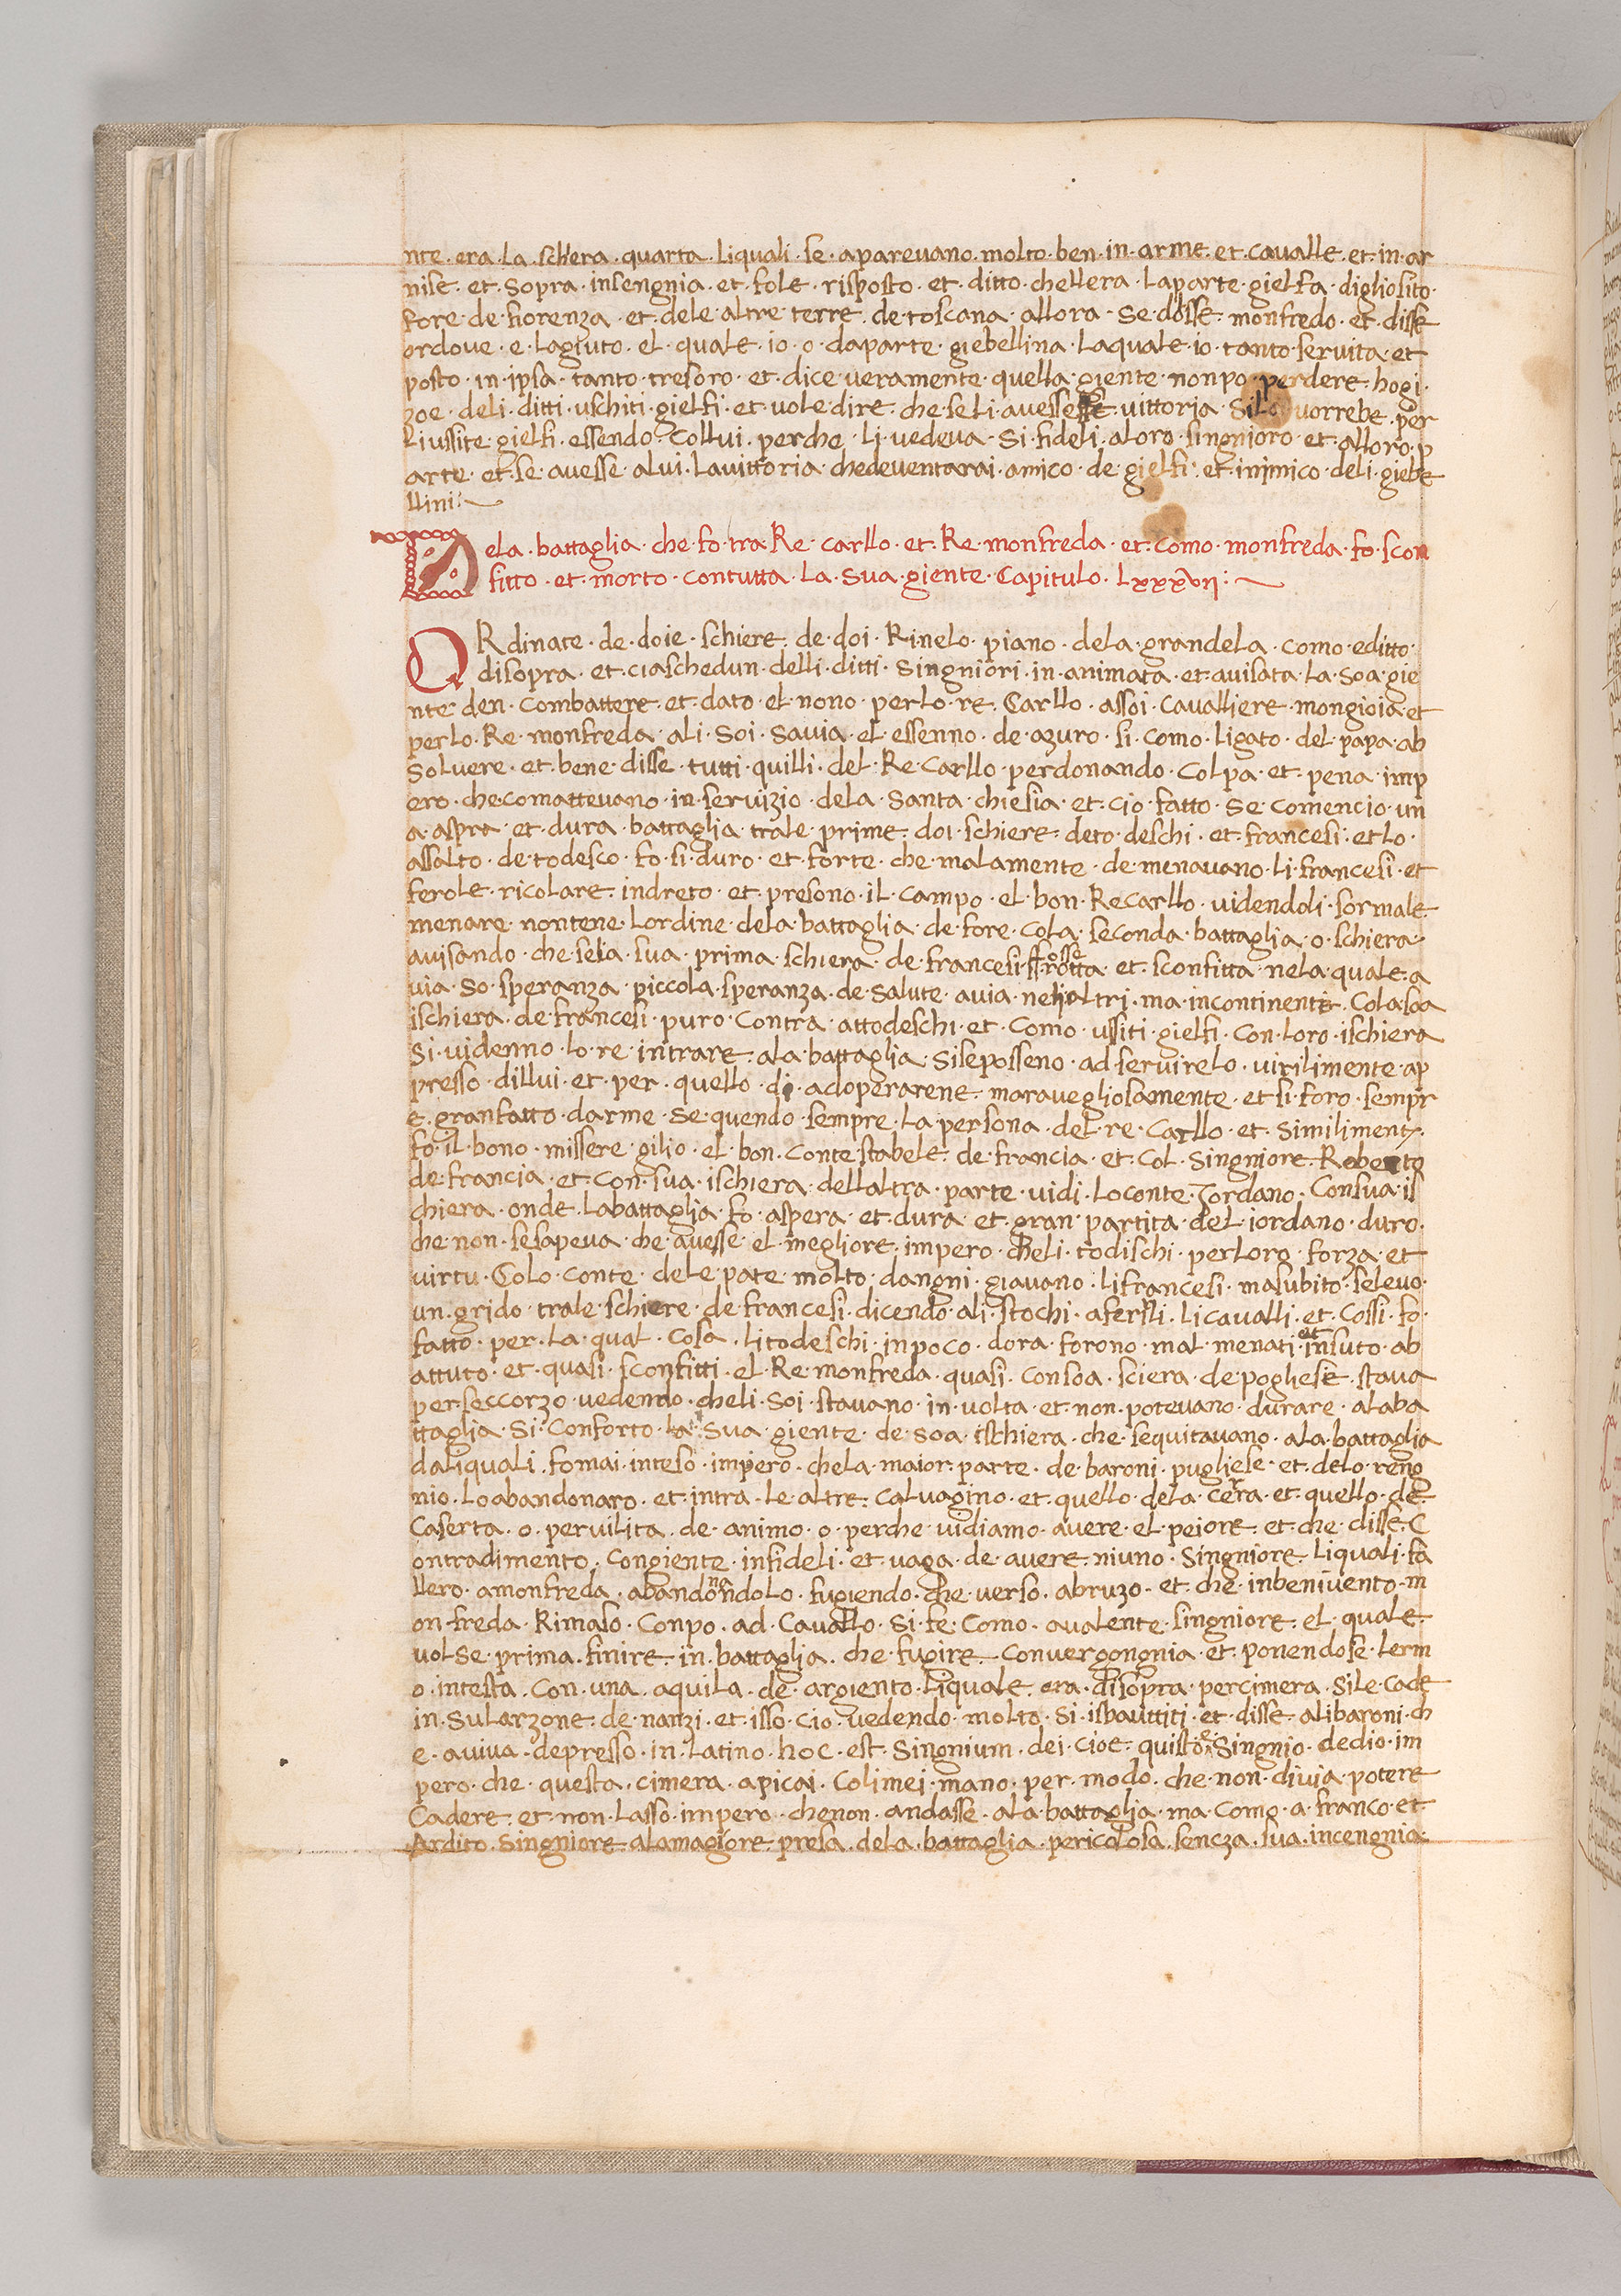 nte · era · La · schera · quarta · liquali · se · aparevano · molto · ben · in · arme · et · cavalle · et · in · ar
nise · et · sopra · insengnia · et · fole · risposto · et · ditto · chellera · laparte · gielfa · digliosito ·
fore · de · fiorenza · et · dele · altre · terre · de · toscana · allora · se · dolse · monfredo · et · disse
ordove · e · lagiuto · el · quale · io · o · daparte · giebellina · laquale · io · tanto · servita · et
posto · in · ipsa · tanto · tresoro · et · dice · veramente · quella · giente · nonpo · perdere · hogi ·
zoe · deli · ditti · uschiti · gielfi · et · vole · dire · che · seli · avesse · vittoria · Silo · vorrebe · per
liussite · gielfi · essendo · Collui · perche · li · vedeva · Si · fideli · aloro · singnioro · et · alloro · p
arte · et · se · avesse · alui · lavittoria · chedeventarai · amico · de · gielfi · et · inimico · deli · giebe
llini :~
Dela · battaglia · che · fo · tra Re · carllo · et · Re · monfreda · et · como · monfreda · fo · scon
fitto · et · morto · contutta · la · sua · giente · Capitulo · Lxxxvii :~
ORdinate · de · doie · schiere · de · doi · Rinelo · piano · dela · grandela · como · editto ·
disopra · et · ciaschedun · delli · ditti · singniori · in · animata · et · avisata · la · soa · gie
nte · den · combattere · et · dato · el · nono · perlo · re · Carllo · assoi · cavalliere · mongioia · et
perlo · Re · monfreda · ali · soi · savia · el · essenno · de · azuro · si · como · ligato · del · papa · ab
solvere · et · bene · disse · tutti · quilli · del · Re · Carllo · perdonando · Colpa · et · pena · imp
ero · che · comattevano · in · servizio · dela · santa · chiesia · et · cio · fatto · se · comencio · un
a · aspra · et · dura · battaglia · trale · prime · doi · schiere · deto · deschi · et · francesi · et lo ·
assalto · de · todesco · fo · si · duro · et · forte · che · malamente · de · menavano · li · francesi · et
ferole · ricolare · indreto · et · presono · il · campo · el · bon · Re Carllo · videndoli · sormale
menare · nontene · Lordine · dela · battaglia · de · fore · cola · seconda · battaglia · o · schiera ·
avisando · che · sela · sua · prima · schiera · de · francesi · fosse rotta · et · sconfitta · nela · quale · a
via · so · speranza · piccola · speranza · de · salute · avia · neli altri · ma · incontinente · Colasoa
ischiera · de · francesi · puro · contra · attodeschi · et · como · ussiti · gielfi · con · loro · ischiera
Si · videnno · lo · re · intrare · ala · battaglia · Sileposseno · ad · servirelo · virilimente · ap
presso · dillui · et · per · quello · di · adoperarene · maravegliosamente · et si · foro · sempr
e · granfatto · darme · se · quendo · sempre · la · persona · del · re · Carllo · et · similiment
fo · il · bono · missere · gilio · el · bon · conte stabele · de · francia · et · col · singniore · Roberto
de · francia · et · con · sua · ischiera · dellaltra · parte · vidi · loconte · Jordano · Consua · is
chiera · onde · labattaglia · fo · aspera · et · dura · et · gran · partita · del · iordano · duro ·
che · non · sesapeva · che · avesse · el · megliore · impero · cheli · todischi · perloro · forza · et
virtu · Colo · conte · dele · pate · molto · dangni · giavano · li francesi · masubito · selevo ·
un · grido · trale · schiere · de francesi · dicendo · ali · stochi · afersli · licavalli · et · Cossi · fo ·
fatto · per · la · qual · cosa · litodeschi · inpoco · dora · forono · mal · menati · et insuto · ab
attuto · et · quasi · sconfitti · el · Re · monfreda · quasi · consoa · sciera · de pogliese · stava
per seccorzo · vedendo · cheli · soi · stavano · in · volta · et · non · potevano · durare · alaba
ttaglia · si · conforto · la sua · giente · de · soa · ischiera · che · sequitavano · ala · battaglia
daliquali · fomai · inteso · impero · chela · maior · parte · de · baroni · pugliese · et · delo · reng
nio · loabandonaro · et · intra · le · altre · calvagino · et · quello · dela · cerra · et quello · de
Caserta · o · pervilita · de · animo · o · perche · vidiamo · avere · el · peiore · et · che · disse · C
ontradimento · congiente · infideli · et · vaga · de · avere · niuno · singniore · liquali · fa
llero · amonfreda · abandonnandolo · fugiendo · che · verso · abruzo · et · che · inbenivento · m
on freda · Rimaso · Conpo · ad · Cavallo · Si · fe · Como · avalente · singniore · el · quale
volse · prima · finire · in · battaglia · che · fugire · Convergongnia · et · ponendose · lerm
o · intesta · Con · una · aquila · de · argiento · liquale · era · disopra · percimera · sile · cade
in · Sularzone · de · nanzi · et · isso · cio · vedendo · molto · Si · isbauttiti · et · disse · alibaroni · ch
e · aviva · depresso · in · latino · hoc · est · singnium · dei · cioe · quisto e singnio · dedio · im
pero · che · questa · cimera · apicai · Colimei · mano · per · modo · che · non · divia · potere
Cadere · et · non · lasso · impero · chenon · andasse · ala · battaglia · ma · como · a · franco · et
Ardito · singniore · alamagiore · presa · dela · battaglia · pericolosa · sencza · sua · incengnia